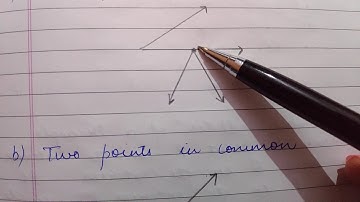 b) Two points in common